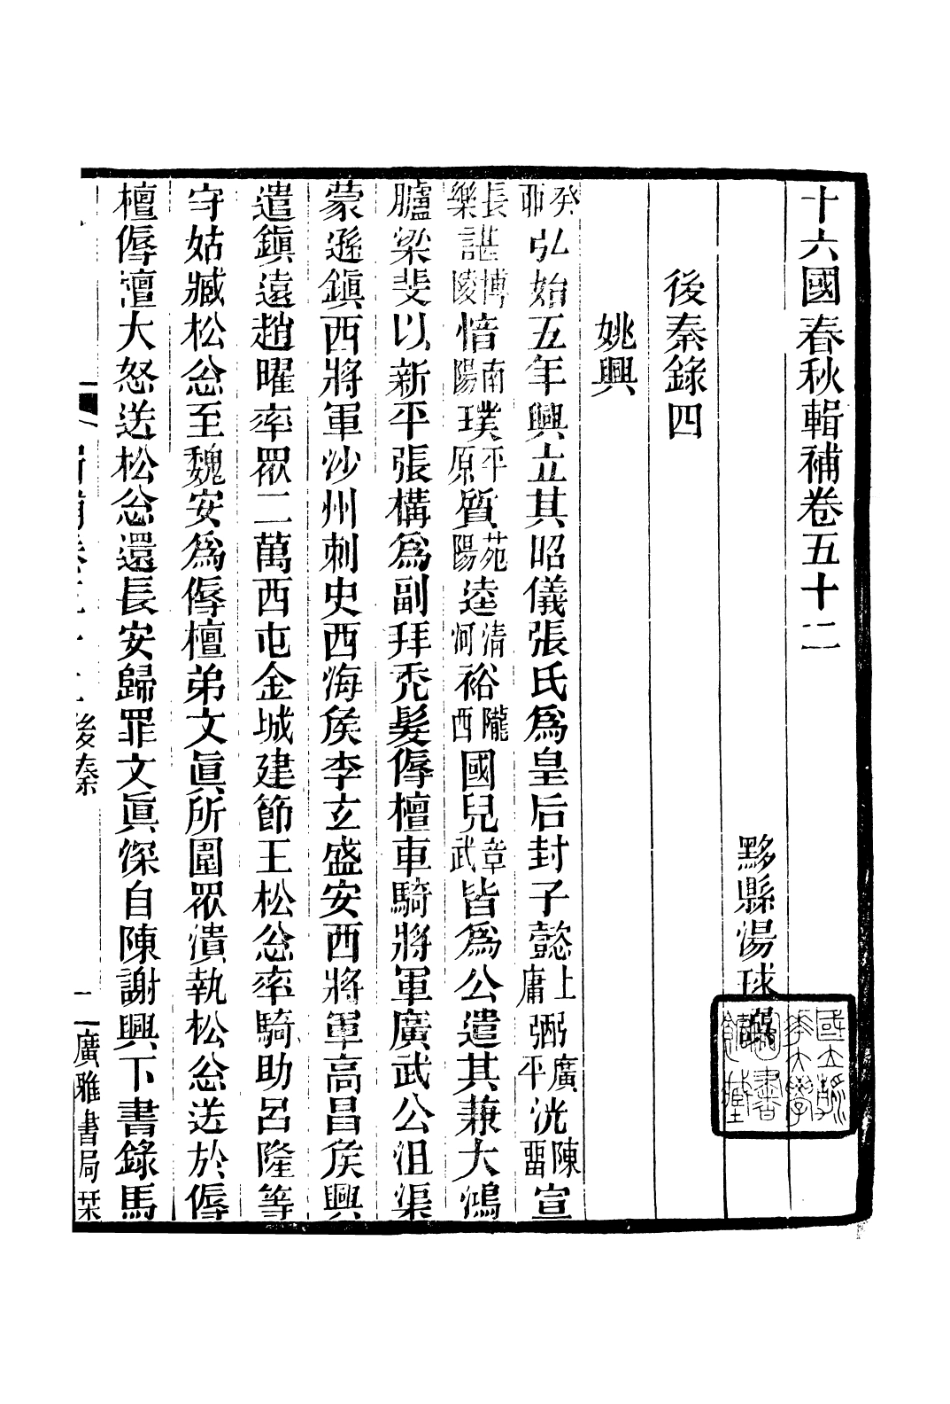 十六國春秋輯補卷五十二
黟縣湯球
後秦錄四
姚興
癸卯弘始五年興立其昭儀張氏爲皇后封子懿上庸弼廣平洸陳留宣
長樂諶博陵愔南陽璞平原質苑陽逵清河裕隴西國兒章武皆爲公遣其兼大鴻
臚梁斐以新平張構爲副拜禿髮傉檀車騎將軍廣武公沮渠
蒙遜鎭西將軍沙州刺史西海矦李玄盛安西將軍高昌矦興
遣鎭遠趙曜率眾二萬西屯金城建節王松忩率騎助呂隆等
守姑臧松忩至魏安爲傉檀弟文眞所圍眾潰執松忩送於傉
檀傉檀大怒送松忩還長安歸罪文眞深自陳謝興下書錄馬
後秦
一
廣雅書局栞
國立浙江大學圖書館藏